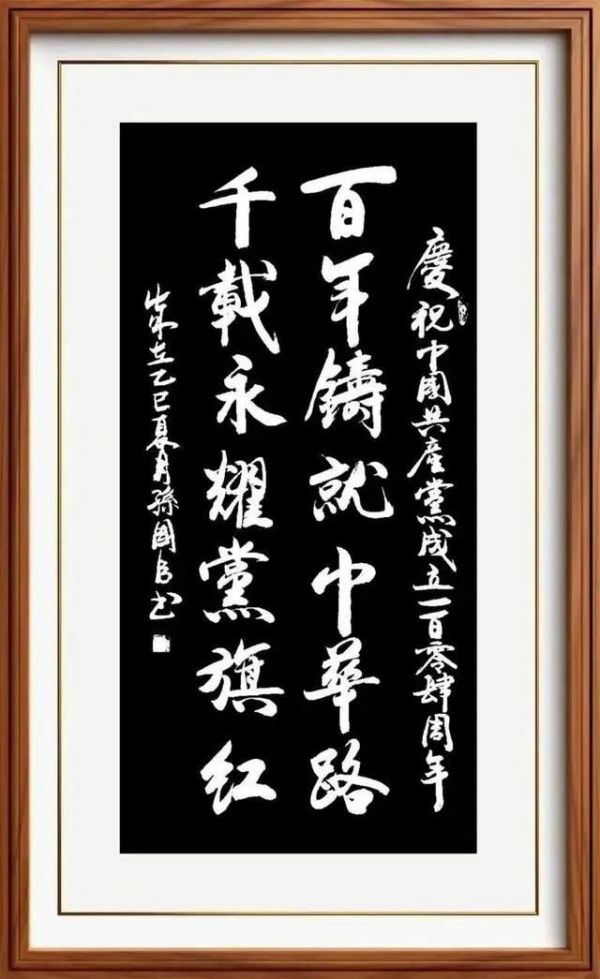 慶祝中國共產黨成立一百零肆周年
百年鑄就中華路
千載永耀黨旗红
歲在乙巳夏月孫國书